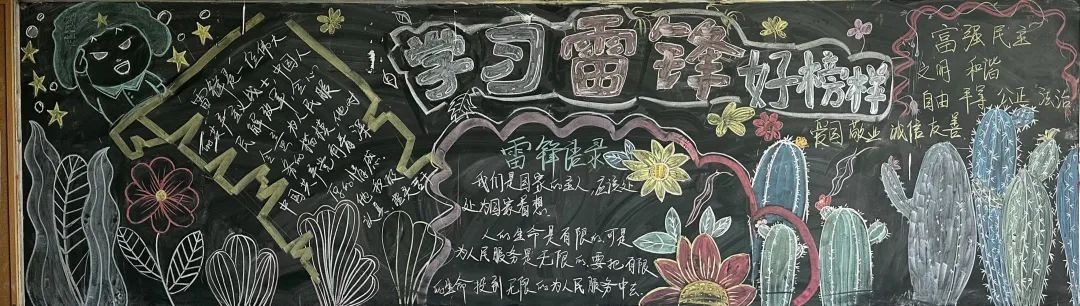 学习雷锋
好榜样
雷锋是一位伟大
的共产主义战士中国人
民解放军全心
全意为人民服
务的楷模，他对
中国共产党有着深
厚的情感。
他积极
认真
雷锋语录
我们是国家的主人，应该处
处为国家着想。
人的生命是有限的，可是
为人民服务是无限的，要把有限
的生命，投到无限的为人民服务中去。
富强 民主
文明 和谐
自由 平等 公正 法治
爱国 敬业 诚信 友善